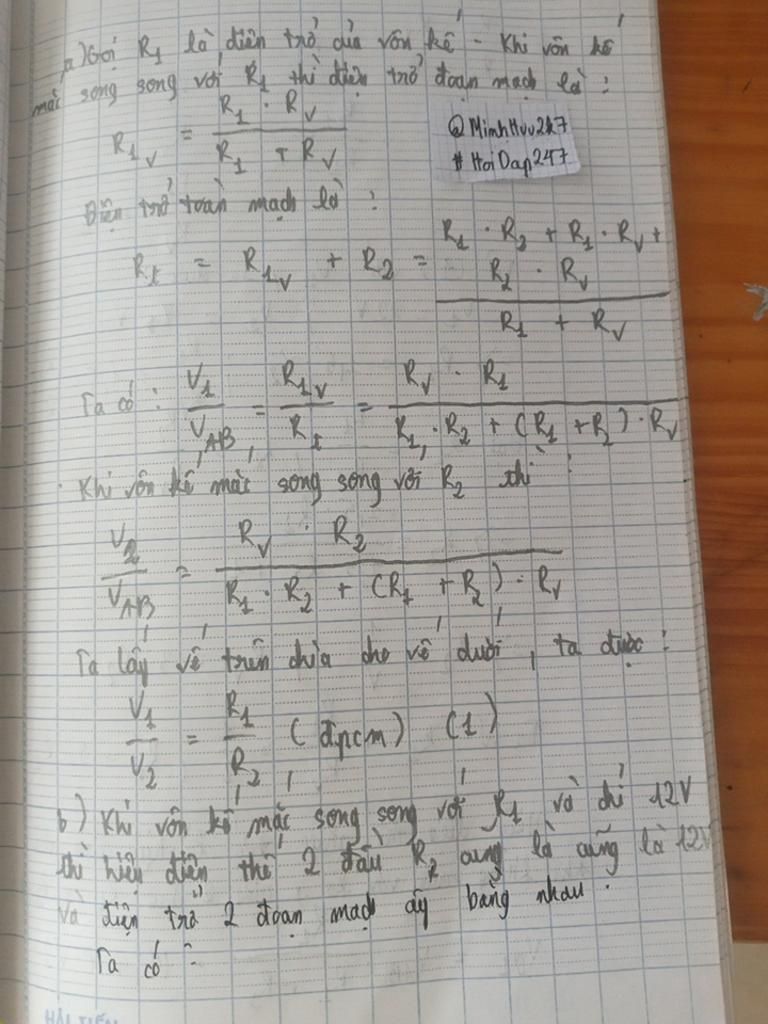 a) Gọi R1 là điện trở của vôn kế - Khi vôn kế
mắc song song với R1 thì điện trở đoạn mạch là :
R1v = R1 . Rv / R1 + Rv
@MinhHuu2k7
# HoiDap247
Điện trở toàn mạch là :
Rt = R1v + R2 = R1 . R2 + R1 . Rv + R2 . Rv / R1 + Rv
Ta có : V1 / VAB = R1v / Rt = Rv . R1 / R1 . R2 + (R1 + R2) . Rv
. Khi vôn kế mắc song song với R2 thì :
V2 / VAB = Rv . R2 / R1 . R2 + (R1 + R2) . Rv
Ta lấy vế trên chia cho vế dưới , ta được :
V1 / V2 = R1 / R2 (đpcm) (1)
b) Khi vôn kế mắc song song với R1 và chỉ 12V
thì hiệu điện thế 2 đầu R2 cung là cũng là 12V
và điện trở 2 đoạn mạch ấy bằng nhau .
Ta có :
HẢI TIẾN